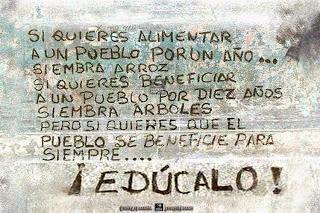 SI QUIERES ALIMENTAR
A UN PUEBLO POR UN AÑO...
SIEMBRA ARROZ
SI QUIERES BENEFICIAR
A UN PUEBLO POR DIEZ AÑOS
SIEMBRA ÁRBOLES
PERO SI QUIERES QUE EL
PUEBLO SE BENEFICIE PARA
SIEMPRE....
¡EDÚCALO!